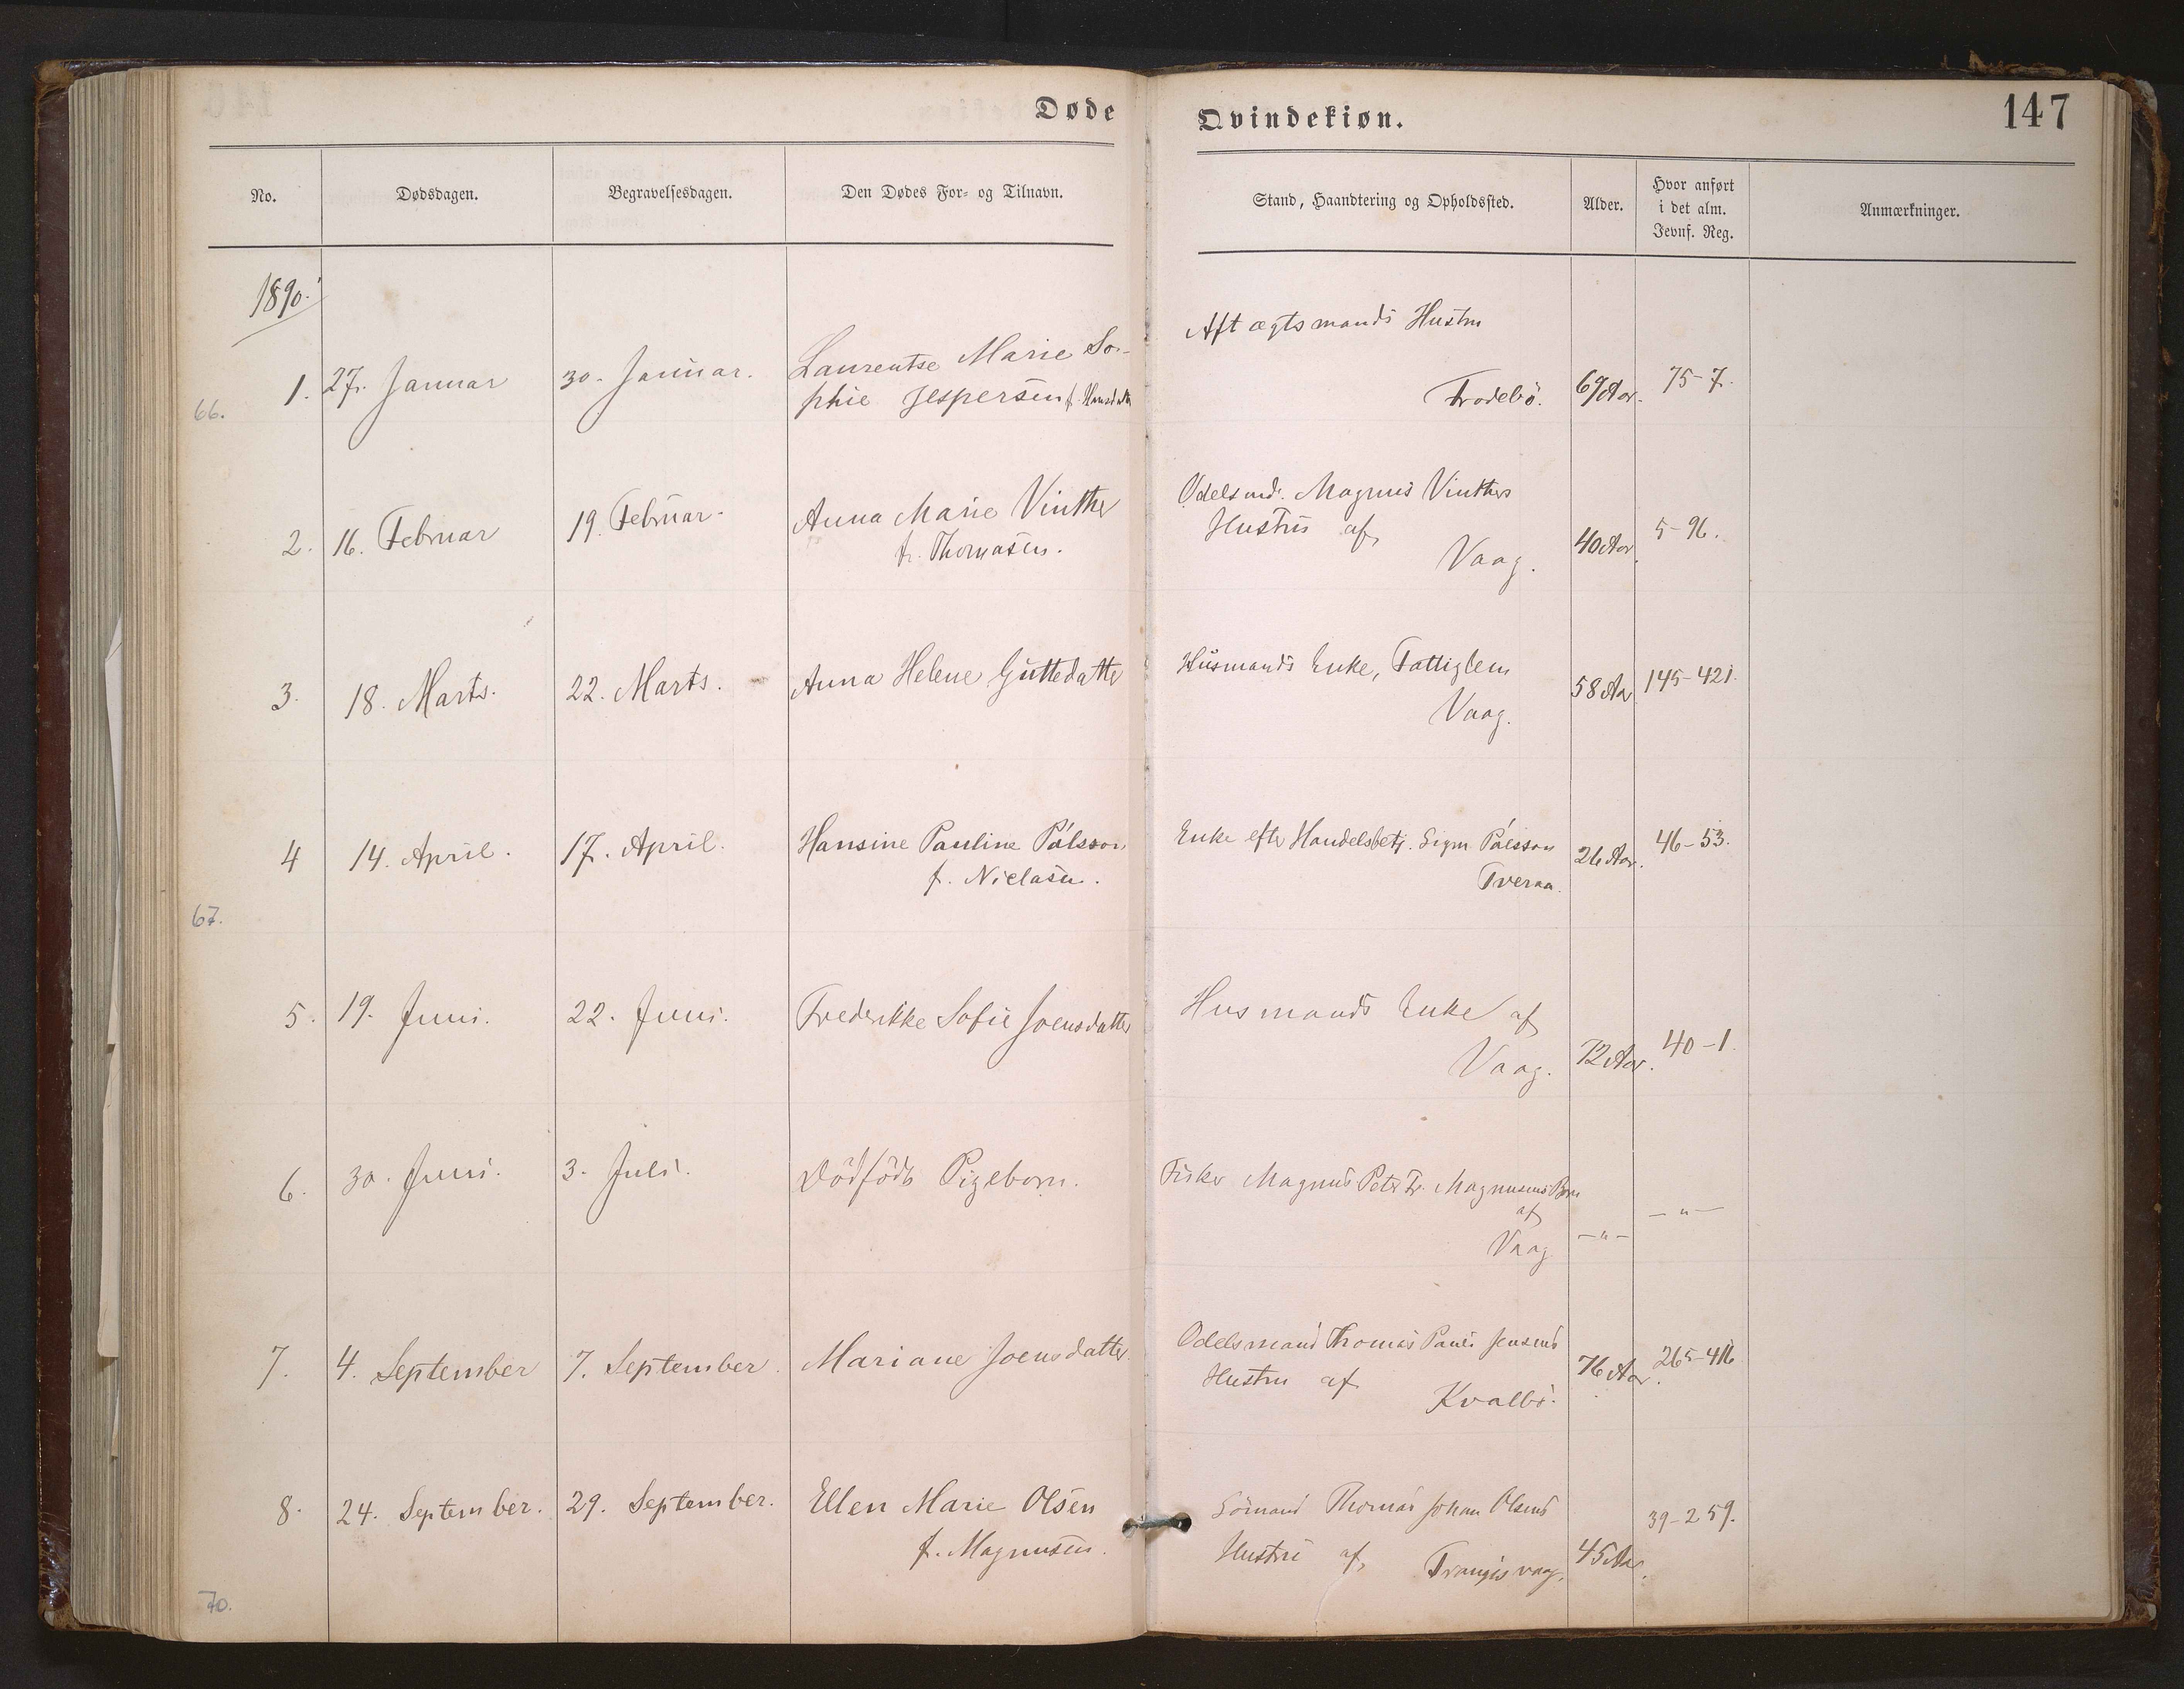 Døde Qvindekiøn. 147
No. Dødsdagen. Begravelsesdagen. Den Dødes For- og Tilnavn. Stand, Haandtering og Opholdssted. Alder. Hvor anført i det alm. Jevnf. Reg. Anmærkninger.
1890.
Aftægtsmands Hustru
1. 27. Januar 30. Januar. Laurentse Marie So-
phie Jespersen f. Hansdatter Frodebö. 69 Aar. 75-7.
66.
Odelsmd. Magnus Vinthers
2. 16. Februar 19. Februar. Anna Marie Vinther Hustru af
f. Thomasen. Vaag. 40 Aar 5-96.
3. 18. Marts. 22. Marts. Anna Helene Guttedatter Husmands Enke, Fattiglem
Vaag. 58 Aar 145-421.
4 14. April. 17. April. Hansine Pauline Pálsson Enke efter Handelsbetj. Sigm Pálsson
f. Niclasen. Tveraa. 26 Aar. 46-53.
67.
5. 19. Juni. 22. Juni. Frederikke Sofie Joensdatter Husmands Enke af
Vaag. 72 Aar. 40-1.
6. 30. Juni. 3. Juli. Dödfödt Pigebarn. Fisker Magnus Peter Fr. Magnusens Barn
af
Vaag -"- -"-
7. 4. September 7. September. Mariane Joensdatter. Odelsmand Thomas Pauli Jensens
Hustru af
Kvalbö. 76 Aar. 265-416
8. 24. September. 29. September. Ellen Marie Olsen Sömand Thomas Johan Olsens
f. Magnusen. Hustru af Trangisvaag. 45 Aar. 39-259.
70.